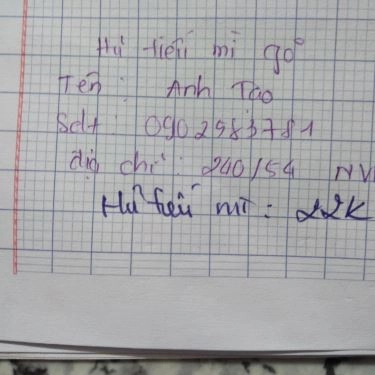 Hủ tiếu mì gõ
Tên: Anh Tao
Sdt: 0902983781
địa chỉ: 240/54 NV
Hủ tiếu mì: 22K